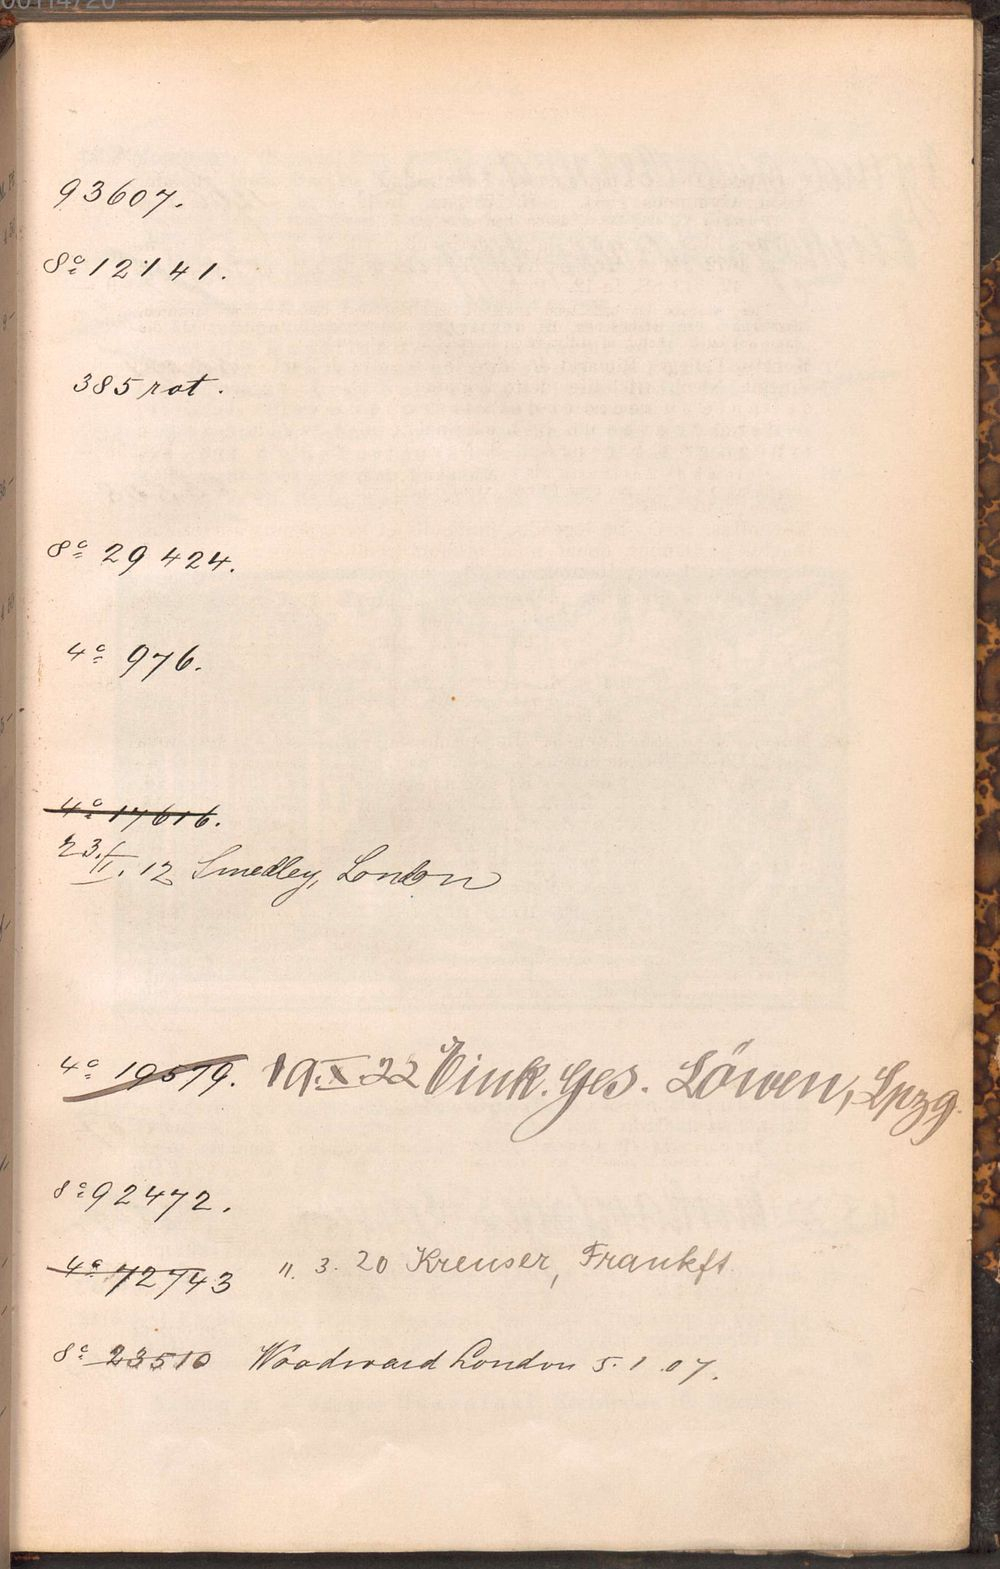 93607.
8º 12141.
385 rot.
8º 29424.
4º 976.
4º 17616.
23./II. 12 Smedley, London
4º 19579. 19. X 22 Eink. Ges. Löwen, Lpzg.
8º 92472.
4º 72743 11. 3. 20 Kreuser, Frankft.
8º 23510 Woodward London 5. 1. 07.